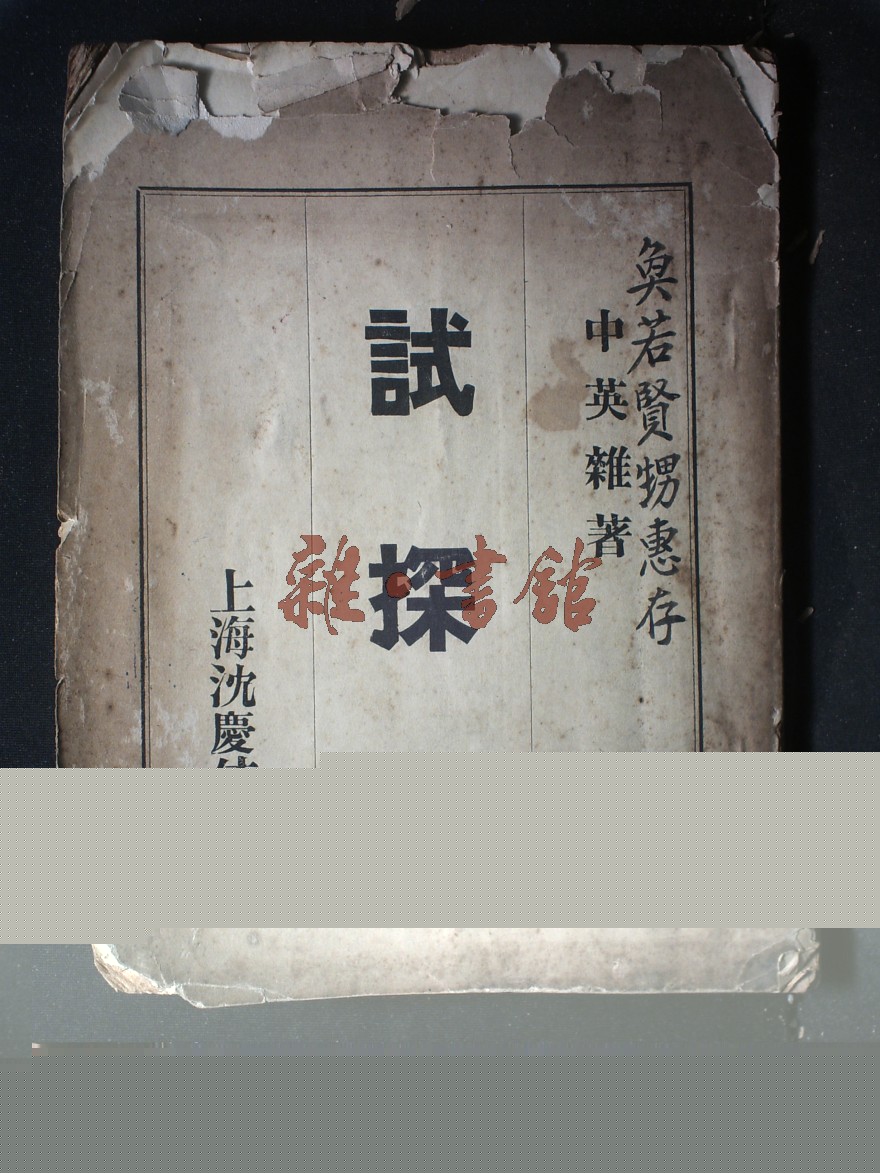 奐若賢甥惠存
中英雜著
試探
上海沈慶
雜·書館